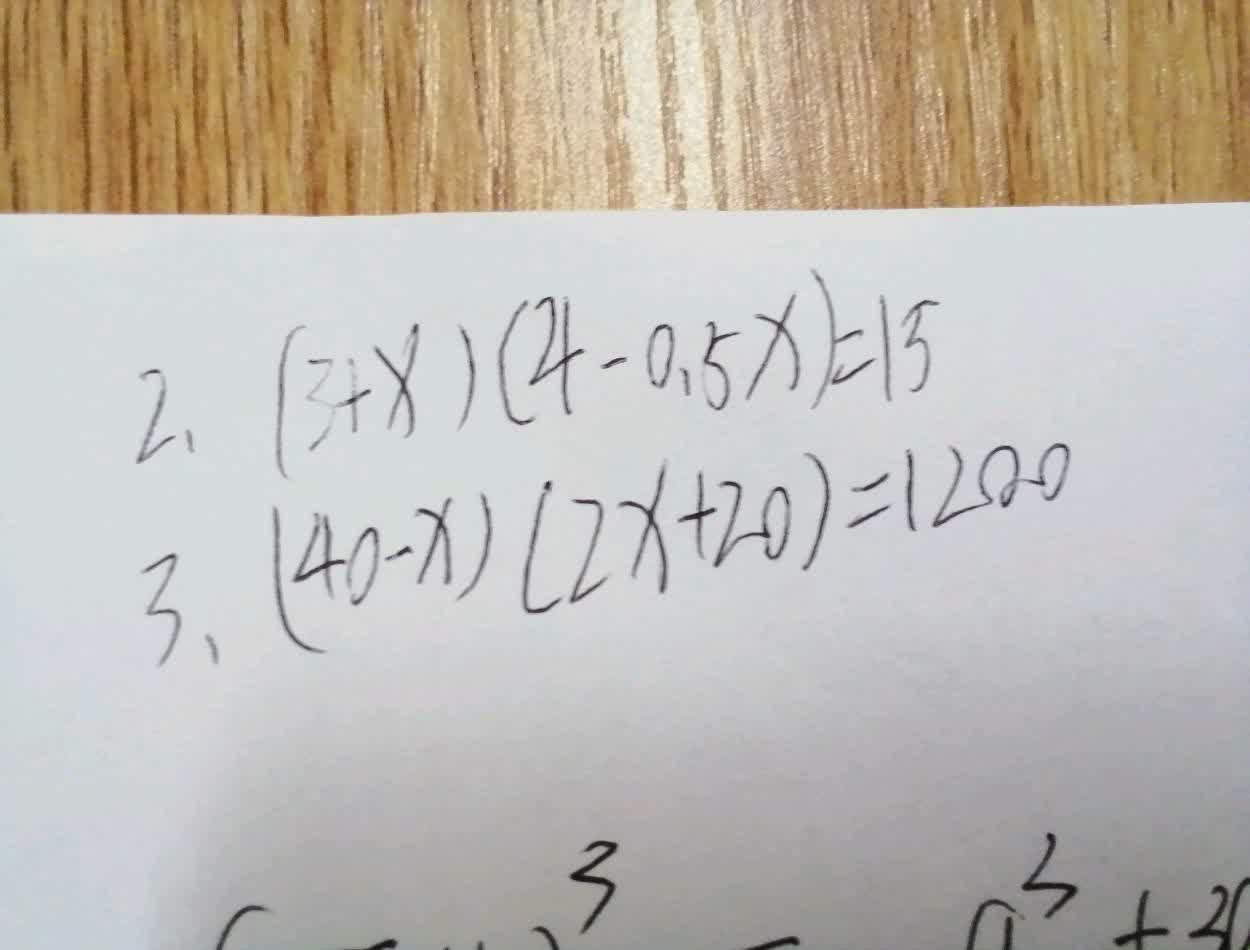 2. (3+x)(4-0.5x)=15
3. (40-x)(2x+20)=1200
)³ = a³+3